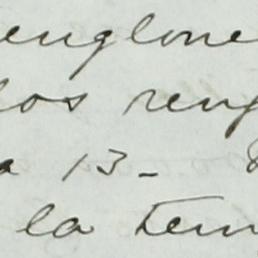 englone
los reng
a 13-
la tem